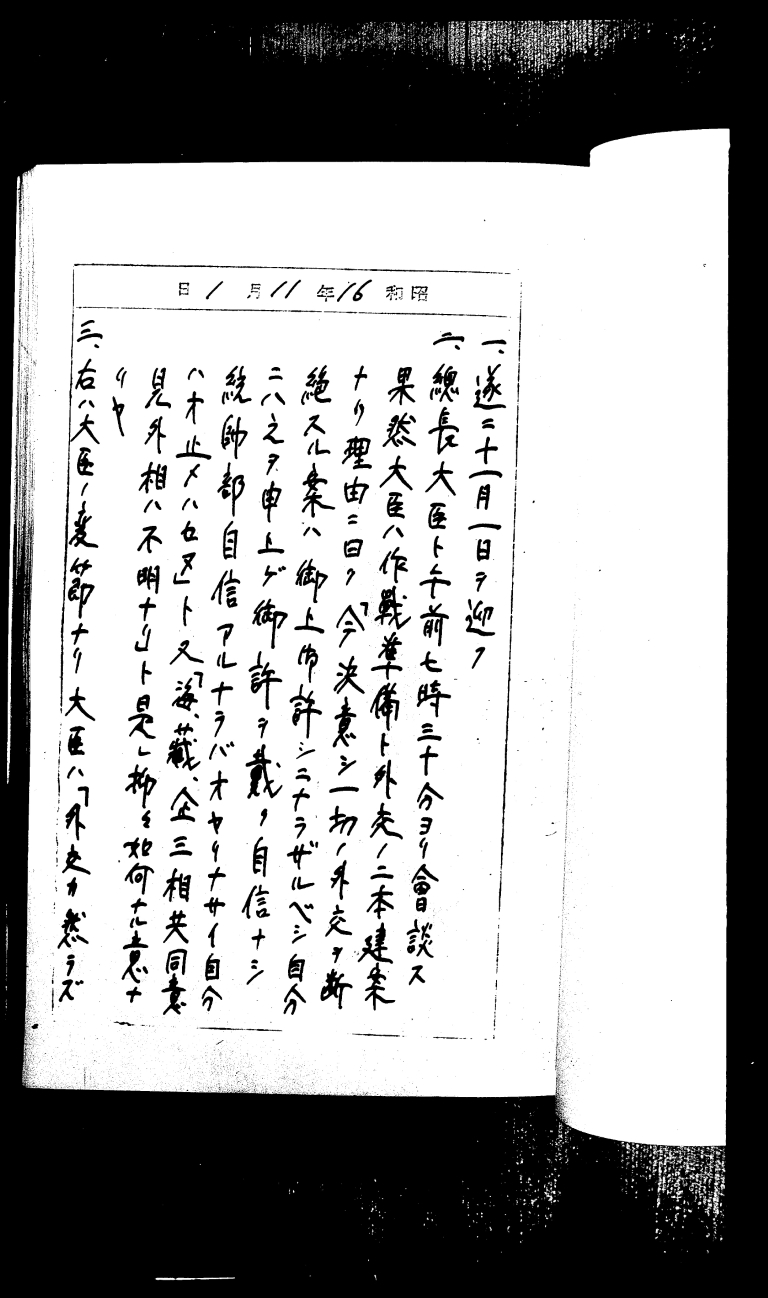 昭和16年11月1日
一、遂ニ十一月一日ヲ迎フ
二、總長大臣ト午前七時三十分ヨリ會談ス
果然大臣ハ作戰準備ト外交ノ二本建案
ナリ理由ニ曰ク「今決意シ一切ノ外交ヲ断
絶スル案ハ御上御許シニナラザルベシ自分
ニハ之ヲ申上ゲ御許ヲ戴ク自信ナシ
統帥部自信アルナラバオヤリナサイ自分
ハオ止メハセヌ」ト又「海、藏、企三相共同意
見外相ハ不明ナリ」ト見レ抑々如何ナル意ナ
リヤ
三、右ハ大臣ノ変節ナリ大臣ハ「外交カ然ラズ